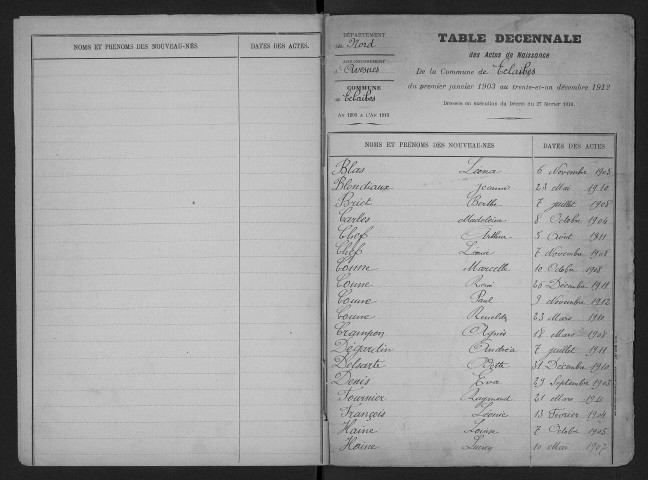 NOMS ET PRÉNOMS DES NOUVEAU-NÉS. DATES DES ACTES.
DÉPARTEMENT
du Nord
ARRONDISSEMENT
d'Avesnes
COMMUNE
de Eclaibes
AN 1903 A L'AN 1912
TABLE DECENNALE
des Actes de Naissance
De la Commune de Eclaibes
du premier janvier 1903 au trente-et-un décembre 1912
Dressée en exécution du Décret du 27 février 1913.
NOMS ET PRÉNOMS DES NOUVEAU-NÉS DATES DES ACTES
Blas Léona 6 Novembre 1903
Blondiaux Jeanne 23 Mai 1910
Briet Berthe 7 juillet 1908
Carles Madeleine 8 Octobre 1904
Chef Arthur 5 Août 1911
Chef 7 Novembre 1908
Coune Marcelle 10 Octobre 1908
Coune René 25 Décembre 1911
Coune Paul 9 Novembre 1912
Coune 23 Mars
Crampon Agnès 18 Mars 1908
Dégardin Andréa 7 juillet 1911
Delsarte Odette 31 Décembre 1910
Denis Eva 29 Septembre 1905
Fournier Raymond 21 Mars
François Léonie 13 Février 1904
Haine Louise 7 Octobre 1905
Haine Lucien 10 Mai 1907